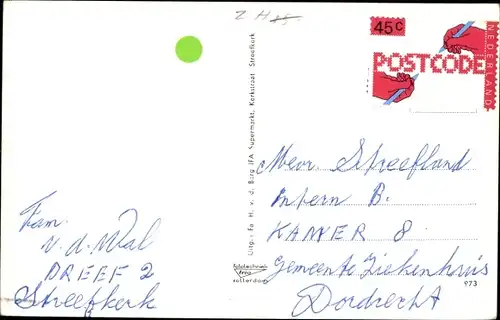 Z H
45c
NEDERLAND
POSTCODE
Uitg.: fa H. v. d. Berg IFA Supermarkt, Kerkstraat - Streefkerk
Mevr. Streefland
Intern B.
KAMER 8
Gemeente Ziekenhuis
Dordrecht
Fam.
v.d. Wal
DREEF 2
Streefkerk
fototechniek
rotterdam
973